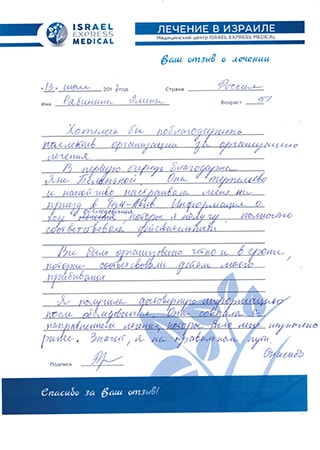 ISRAEL
EXPRESS
MEDICAL
ЛЕЧЕНИЕ В ИЗРАИЛЕ
Медицинский центр ISRAEL EXPRESS MEDICAL
Ваш отзыв о лечении
13 июля 2017 год Страна Россия
Имя Возраст 51
Хотелось бы поблагодарить
организации за организацию
лечения
В первую очередь благодарна
Яне Она терпеливо
и настойчиво настраивала меня на
приезд в Тель-Авив. Информация о
обследования
ходе которое я получу, полностью
соответствовала действительности.
Все было организовано четко и в сроки,
которые соответствовали датам моего
пребывания
Я получила достоверную информацию
после обследования. Она совпала с
направлением лечения, которое было мне назначено
ранее. Значит, я на правильном пути.
Спасибо
Подпись
Спасибо за Ваш отзыв!